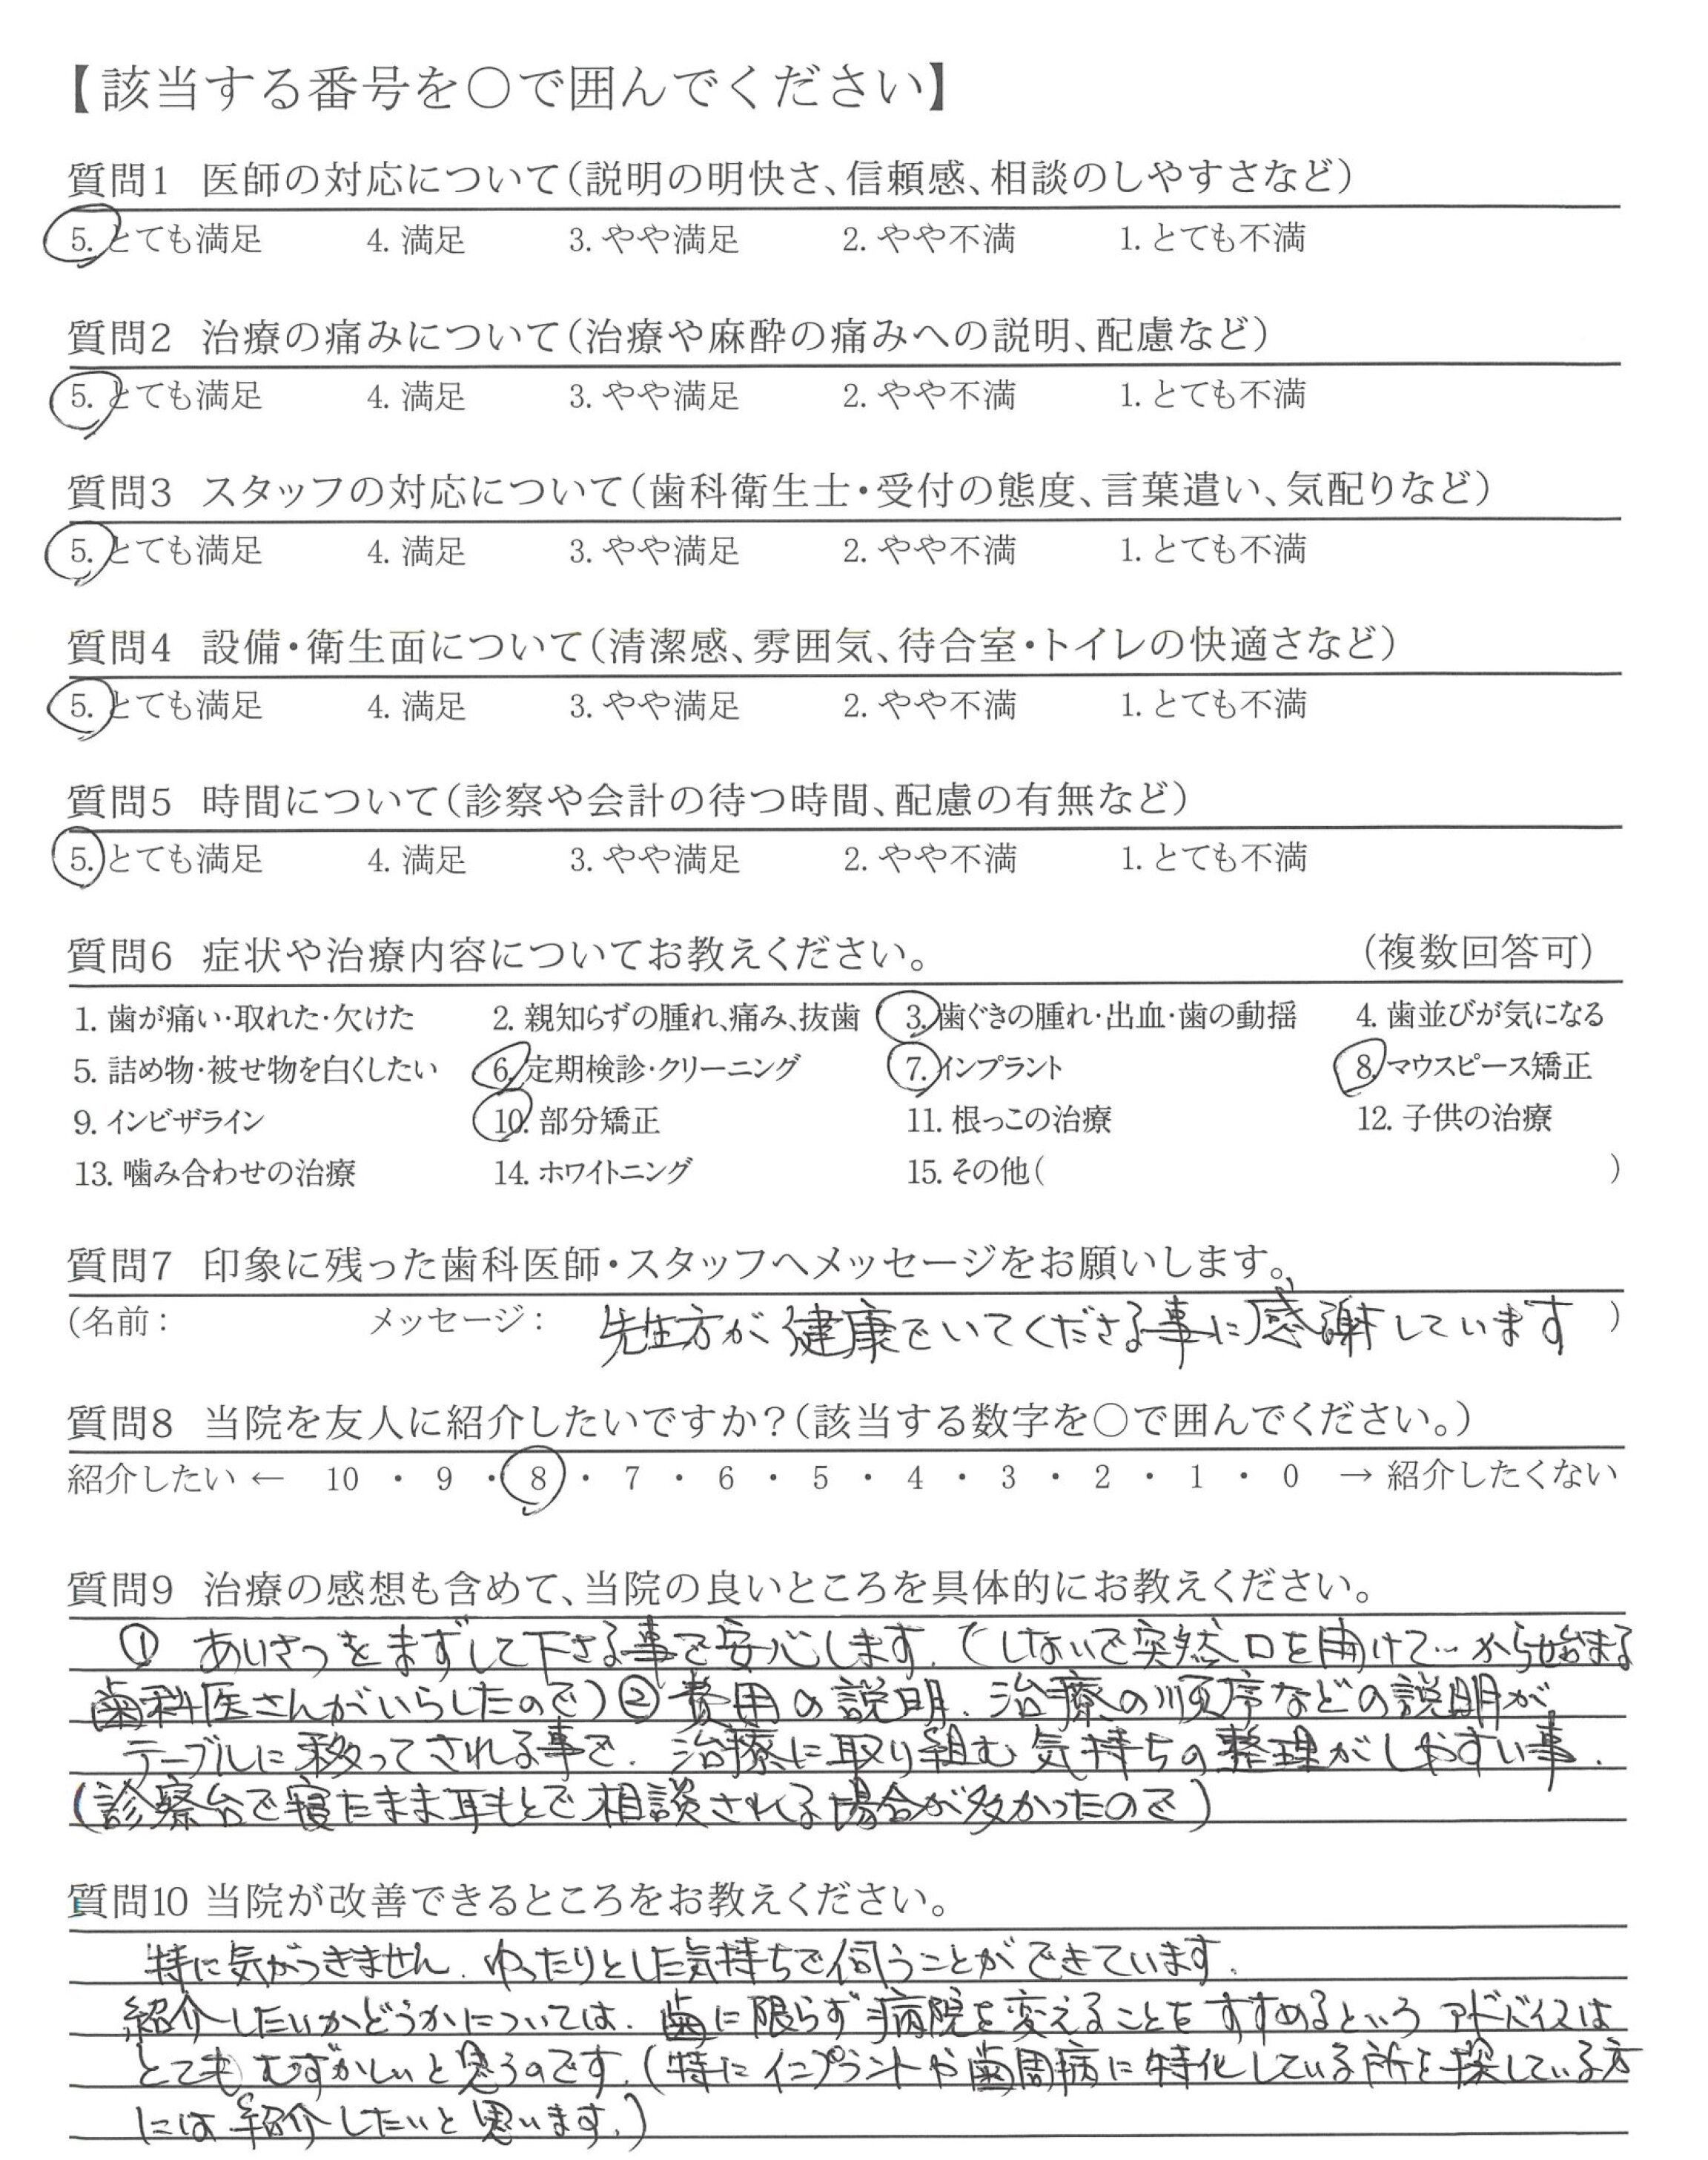 【該当する番号を○で囲んでください】
質問1 医師の対応について（説明の明快さ、信頼感、相談のしやすさなど）
5. とても満足 4. 満足 3. やや満足 2. やや不満 1. とても不満
質問2 治療の痛みについて（治療や麻酔の痛みへの説明、配慮など）
5. とても満足 4. 満足 3. やや満足 2. やや不満 1. とても不満
質問3 スタッフの対応について（歯科衛生士・受付の態度、言葉遣い、気配りなど）
5. とても満足 4. 満足 3. やや満足 2. やや不満 1. とても不満
質問4 設備・衛生面について（清潔感、雰囲気、待合室・トイレの快適さなど）
5. とても満足 4. 満足 3. やや満足 2. やや不満 1. とても不満
質問5 時間について（診察や会計の待つ時間、配慮の有無など）
5. とても満足 4. 満足 3. やや満足 2. やや不満 1. とても不満
質問6 症状や治療内容についてお教えください。 （複数回答可）
1. 歯が痛い・取れた・欠けた 2. 親知らずの腫れ、痛み、抜歯 3. 歯ぐきの腫れ・出血・歯の動揺 4. 歯並びが気になる
5. 詰め物・被せ物を白くしたい 6. 定期検診・クリーニング 7. インプラント 8. マウスピース矯正
9. インビザライン 10. 部分矯正 11. 根っこの治療 12. 子供の治療
13. 噛み合わせの治療 14. ホワイトニング 15. その他（ ）
質問7 印象に残った歯科医師・スタッフへメッセージをお願いします。
（名前： メッセージ： 先生方が健康でいてくださる事に感謝しています ）
質問8 当院を友人に紹介したいですか？（該当する数字を○で囲んでください。）
紹介したい ← 10 ・ 9 ・ 8 ・ 7 ・ 6 ・ 5 ・ 4 ・ 3 ・ 2 ・ 1 ・ 0 → 紹介したくない
質問9 治療の感想も含めて、当院の良いところを具体的にお教えください。
① あいさつをまずして下さる事で安心します。（しないで突然口を開けて…から始まる
歯科医さんがいらしたので）② 費用の説明、治療の順序などの説明が
テーブルに移ってされる事で、治療に取り組む気持ちの整理がしやすい事。
（診察台で寝たまま耳もとで相談される場合が多かったので）
質問10 当院が改善できるところをお教えください。
特に気がつきません。ゆったりとした気持ちで伺うことができています。
紹介したいかどうかについては、歯に限らず病院を変えることをすすめるというアドバイスは
とてもむずかしいと思うのです。（特にインプラントや歯周病に特化している所を探している方
には紹介したいと思います。）